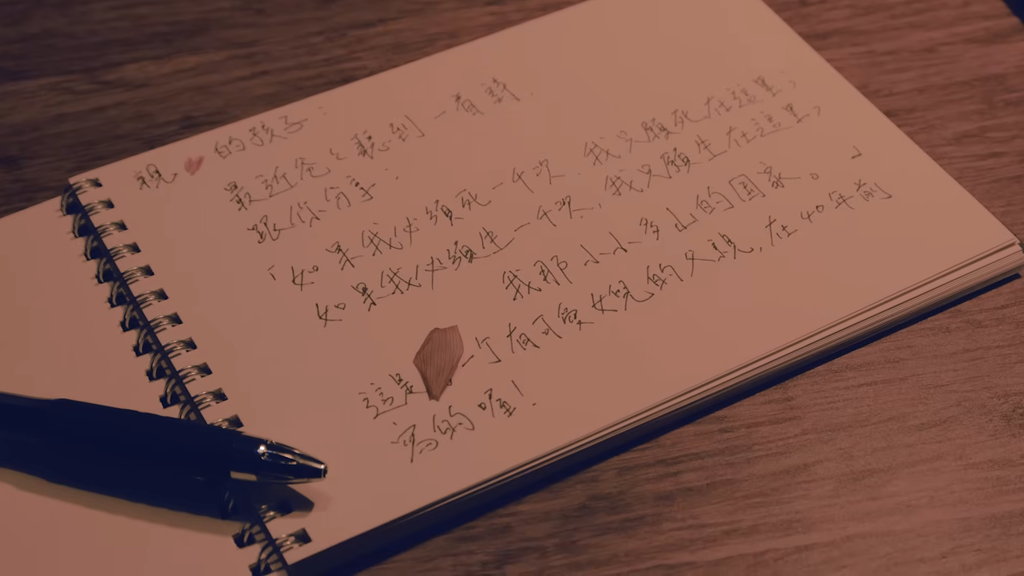 親❤的孩子:
最近爸爸聽到一首詩.
跟你分享:
「如果我必須死一千次,我只願死在這裏,
如果我必須生一千次,我只願生在這里,
我那小小多山的國家。」
這是一个有可愛女兒的父親,在40年前
寫的喔!